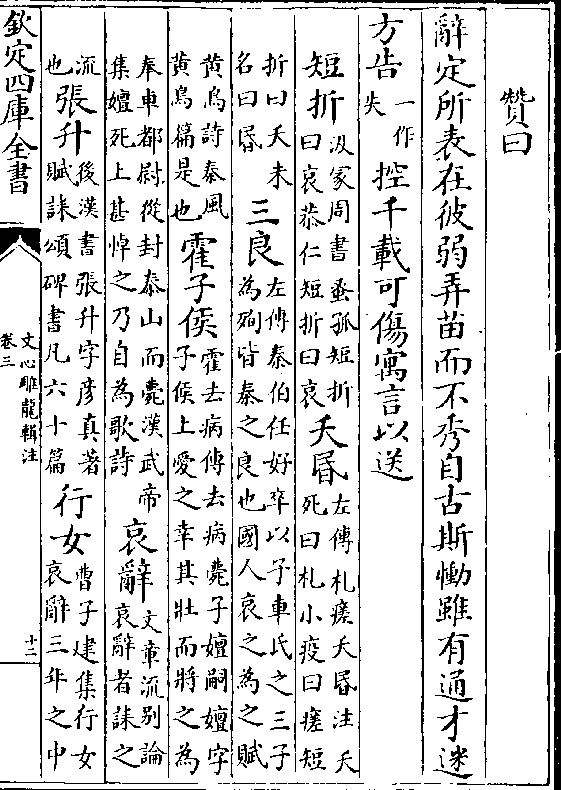 贊曰
辭定所表在彼弱弄苗而不秀自古斯慟雖有通才迷
方告一作失控千載可傷寓言以送
短折汲冢周書蚤孤短折曰哀恭仁短折曰哀夭昏左傳札瘥夭昏注夭死曰札小疫曰瘥短
折曰夭未名曰昏三良左傳秦伯任好卒以子車氏之三子為殉皆秦之良也國人哀之為之賦
黃鳥詩秦風黃鳥篇是也霍子侯霍去病傳去病薨子嬗嗣嬗字子侯上愛之幸其壯而將之為
奉車都尉從封泰山而薨漢武帝集嬗死上甚悼之乃自為歌詩哀辭文章流別論哀辭者誄之
流也張升後漢書張升字彥真著賦誄頌碑書凡六十篇行女曹子建集行女哀辭三年之中
欽定四庫全書
文心雕龍輯注
卷三
十二